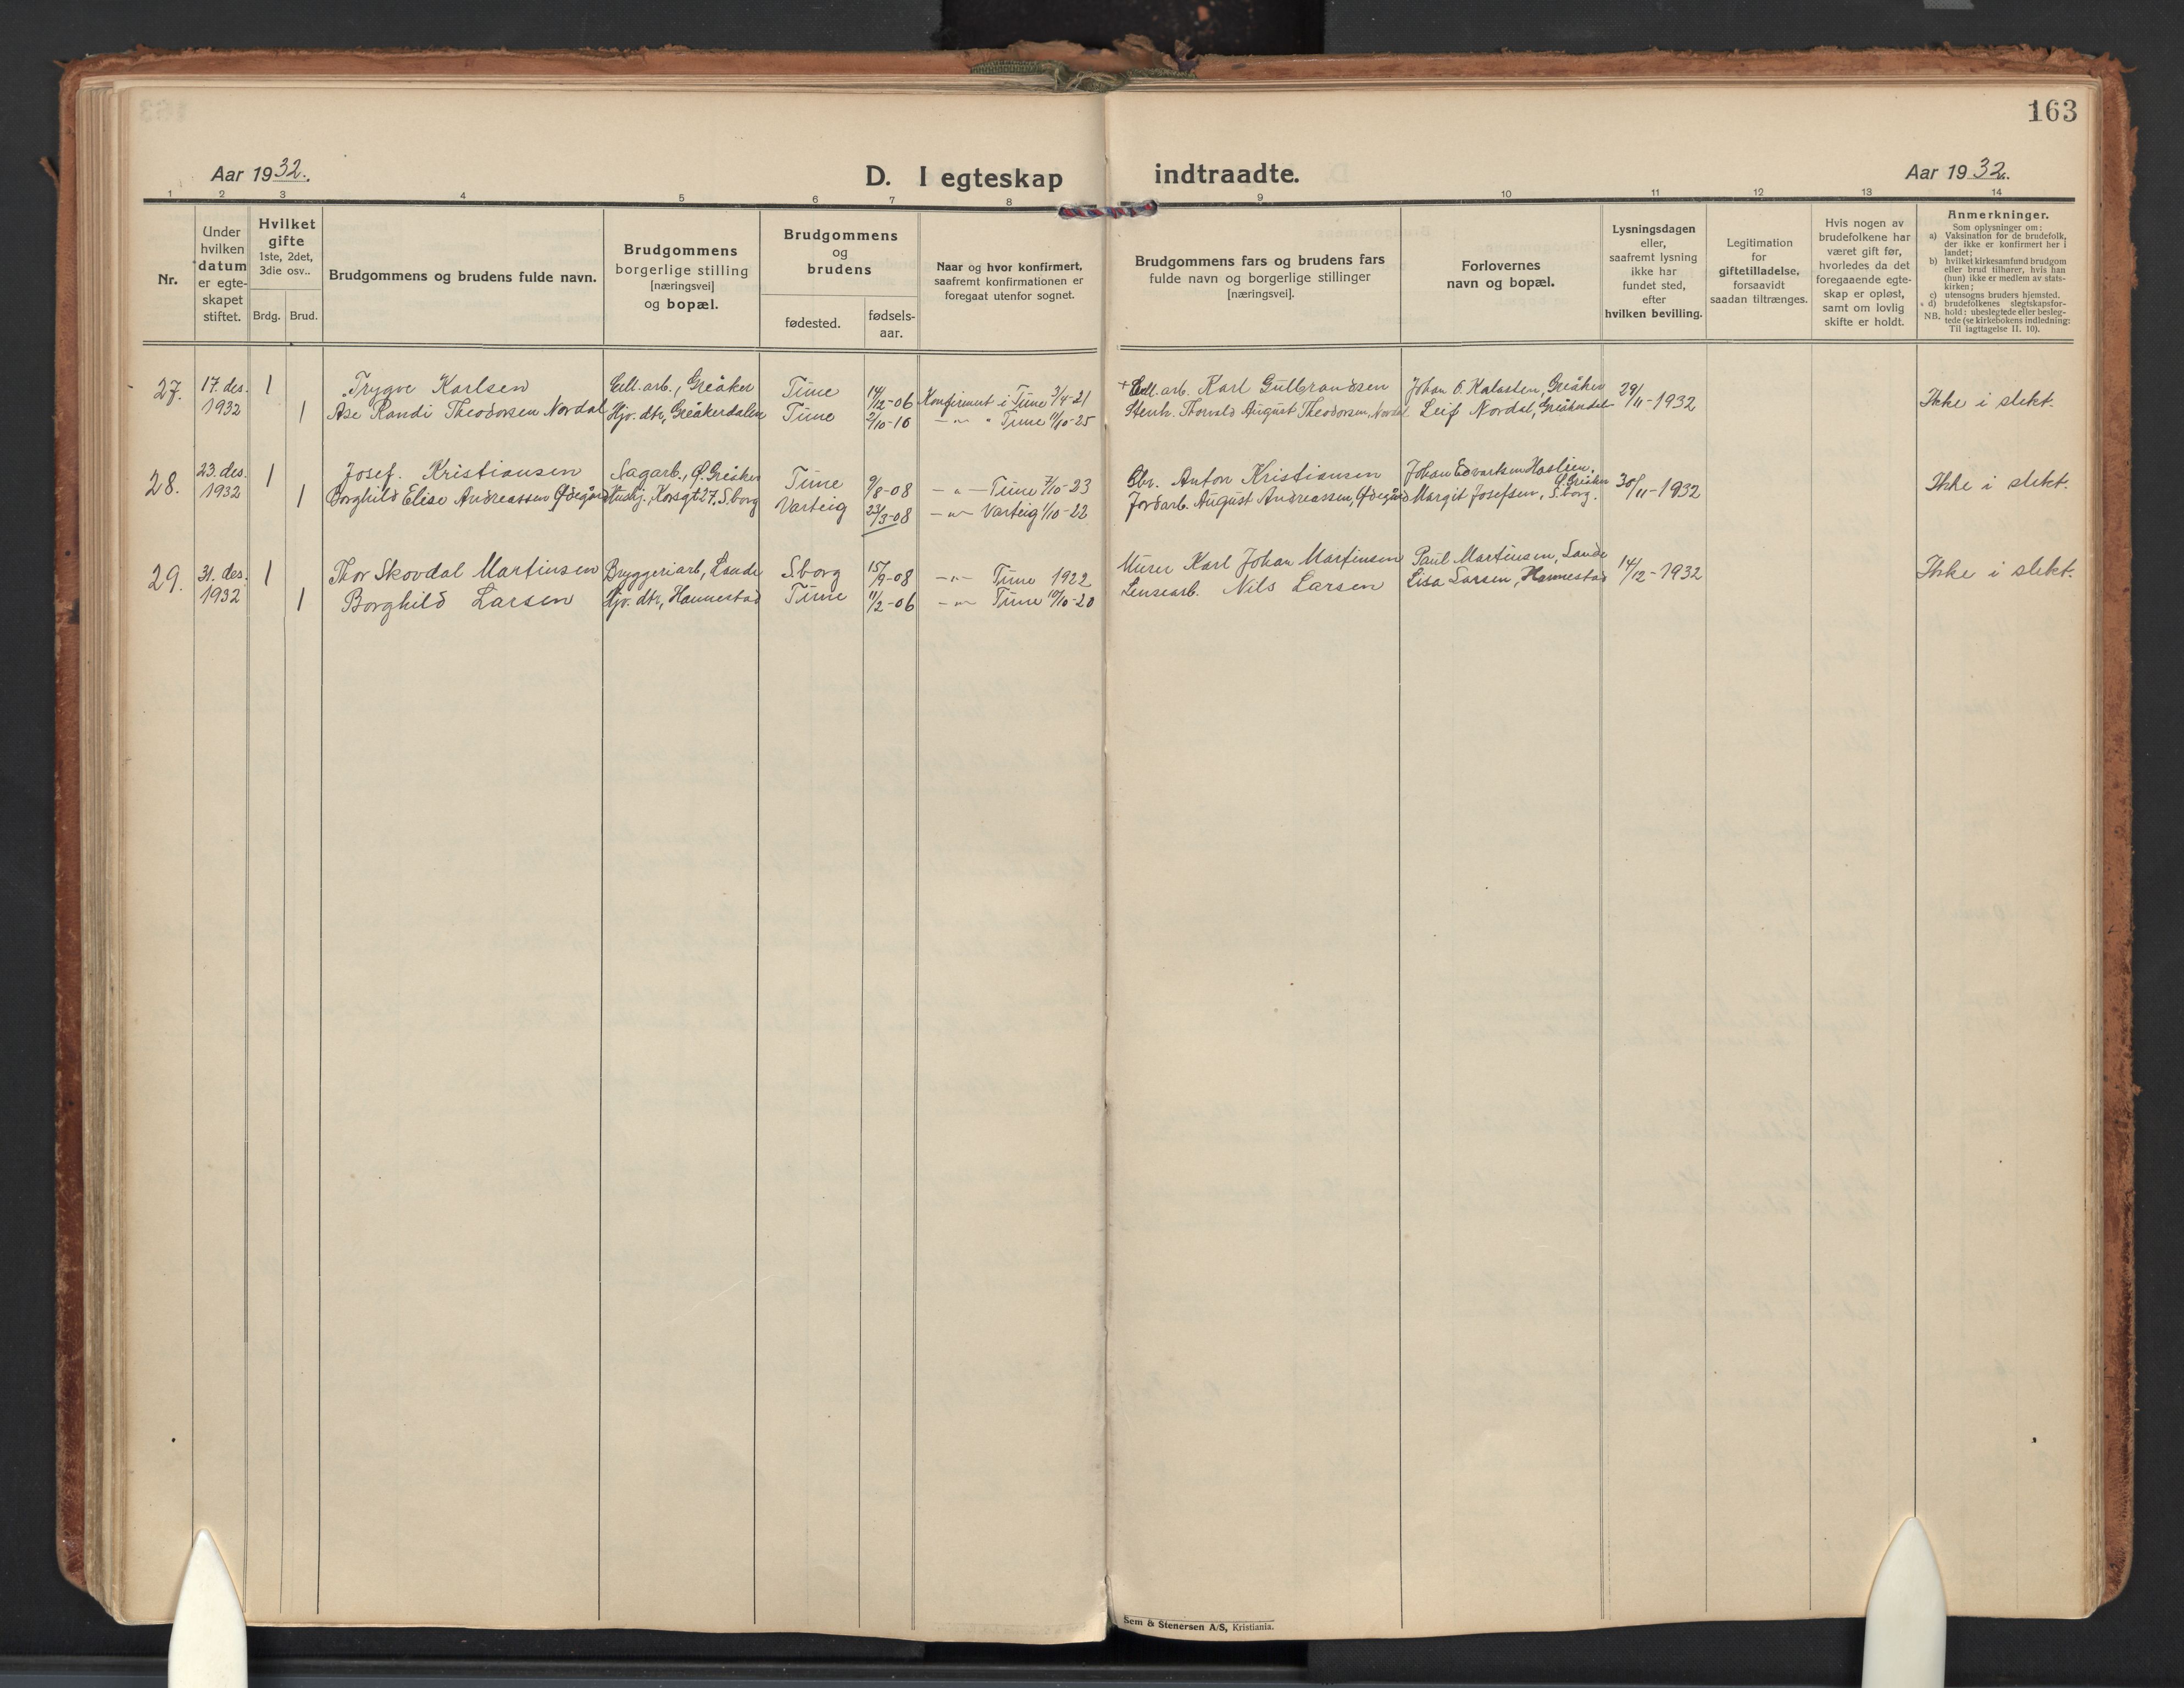 163
Aar 1932.
D. I egteskap indtraadte.
Aar 1932.
1 2 3 4 5 6 7 8 9 10 11 12 13 14
Nr.
Under hvilken datum er egte-skapet stiftet.
Hvilket gifte
1ste, 2det, 3die osv..
Brdg. Brud.
Brudgommens og brudens fulde navn.
Brudgommens borgerlige stilling [næringsvei] og bopæl.
Brudgommens og brudens
fødested.
fødsels-aar.
Naar og hvor konfirmert, saafremt konfirmationen er foregaat utenfor sognet.
Brudgommens fars og brudens fars fulde navn og borgerlige stillinger [næringsvei].
Forlovernes navn og bopæl.
Lysningsdagen eller, saafremt lysning ikke har fundet sted, efter hvilken bevilling.
Legitimation for giftetilladelse, forsaavidt saadan tiltrænges.
Hvis nogen av brudefolkene har været gift før, hvorledes da det foregaaende egte-skap er opløst, samt om lovlig skifte er holdt.
Anmerkninger.
Som oplysninger om:
a) Vaksination for de brudefolk, der ikke er konfirmert her i landet;
b) hvilket kirkesamfund brudgom eller brud tilhører, hvis han (hun) ikke er medlem av stats-kirken;
c) utensogns bruders hjemsted.
d) brudefolkenes slegtskapsfor-hold: ubeslegtede eller besleg-tede (se kirkebokens indledning: Til iagttagelse II. 10).
NB.
27. 17. des. 1 Trygve Karlsen Cell. arb., Greåker Tune 14/12-06 Konfirmert i Tune 3/4-21 + Cell. arb. Karl Gulbrandsen Johan O. Kalasten, Greåker 29/11-1932 Ikke i slekt.
1932 1 Åse Randi Theodorsen Nordal Hjv. dtr., Greåkerdalen Tune 2/10-10 -"- " Tune 11/10-25 Stenh. Thorvald August Theodorsen, Nordal Leif Nordal, Greåkerdalen
28. 23. des. 1 Josef. Kristiansen Sagarb., Ø. Greåker Tune 9/8-08 -"- Tune 7/10-23 Obr. Anton Kristiansen Johan Edvartsen Haslien, Ø. Greåker 30/11-1932 Ikke i slekt.
1932 1 Borghild Elise Andreassen Ødegård Hushj., Korsgt 27, S.borg Varteig 23/3-08 -"- Varteig 1/10-22 Jordarb. August Andreassen, Ødegård Margit Josefsen, S.borg.
29. 31. des. 1 Thor Skovdal Martinsen Bryggeriarb, Lande S.borg 15/9-08 -"- Tune 1922 Murer Karl Johan Martinsen Paul Martinsen, Lande 14/12-1932 Ikke i slekt.
1932 1 Borghild Larsen Hjv. dtr., Hannestad Tune 11/2-06 -"- Tune 10/10-20 Lensearb. Nils Larsen Lisa Larsen, Hannestad
Sem & Stenersen A/S, Kristiania.